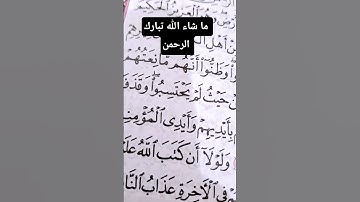 ما شاء الله تبارك
الرحمن
ٱلْعَزِيزُ ٱلْحَكِيمُ
مِنْ أَهْلِ
وَظَنُّوٓا۟ أَنَّهُم مَّانِعَتُهُمْ
حَيْثُ لَمْ يَحْتَسِبُوا۟ ۖ وَقَذَفَ
بِأَيْدِيهِمْ وَأَيْدِى ٱلْمُؤْمِنِ
وَلَوْلَآ أَن كَتَبَ ٱللَّهُ عَلَ
فِى ٱلْءَاخِرَةِ عَذَابُ ٱلنَّا